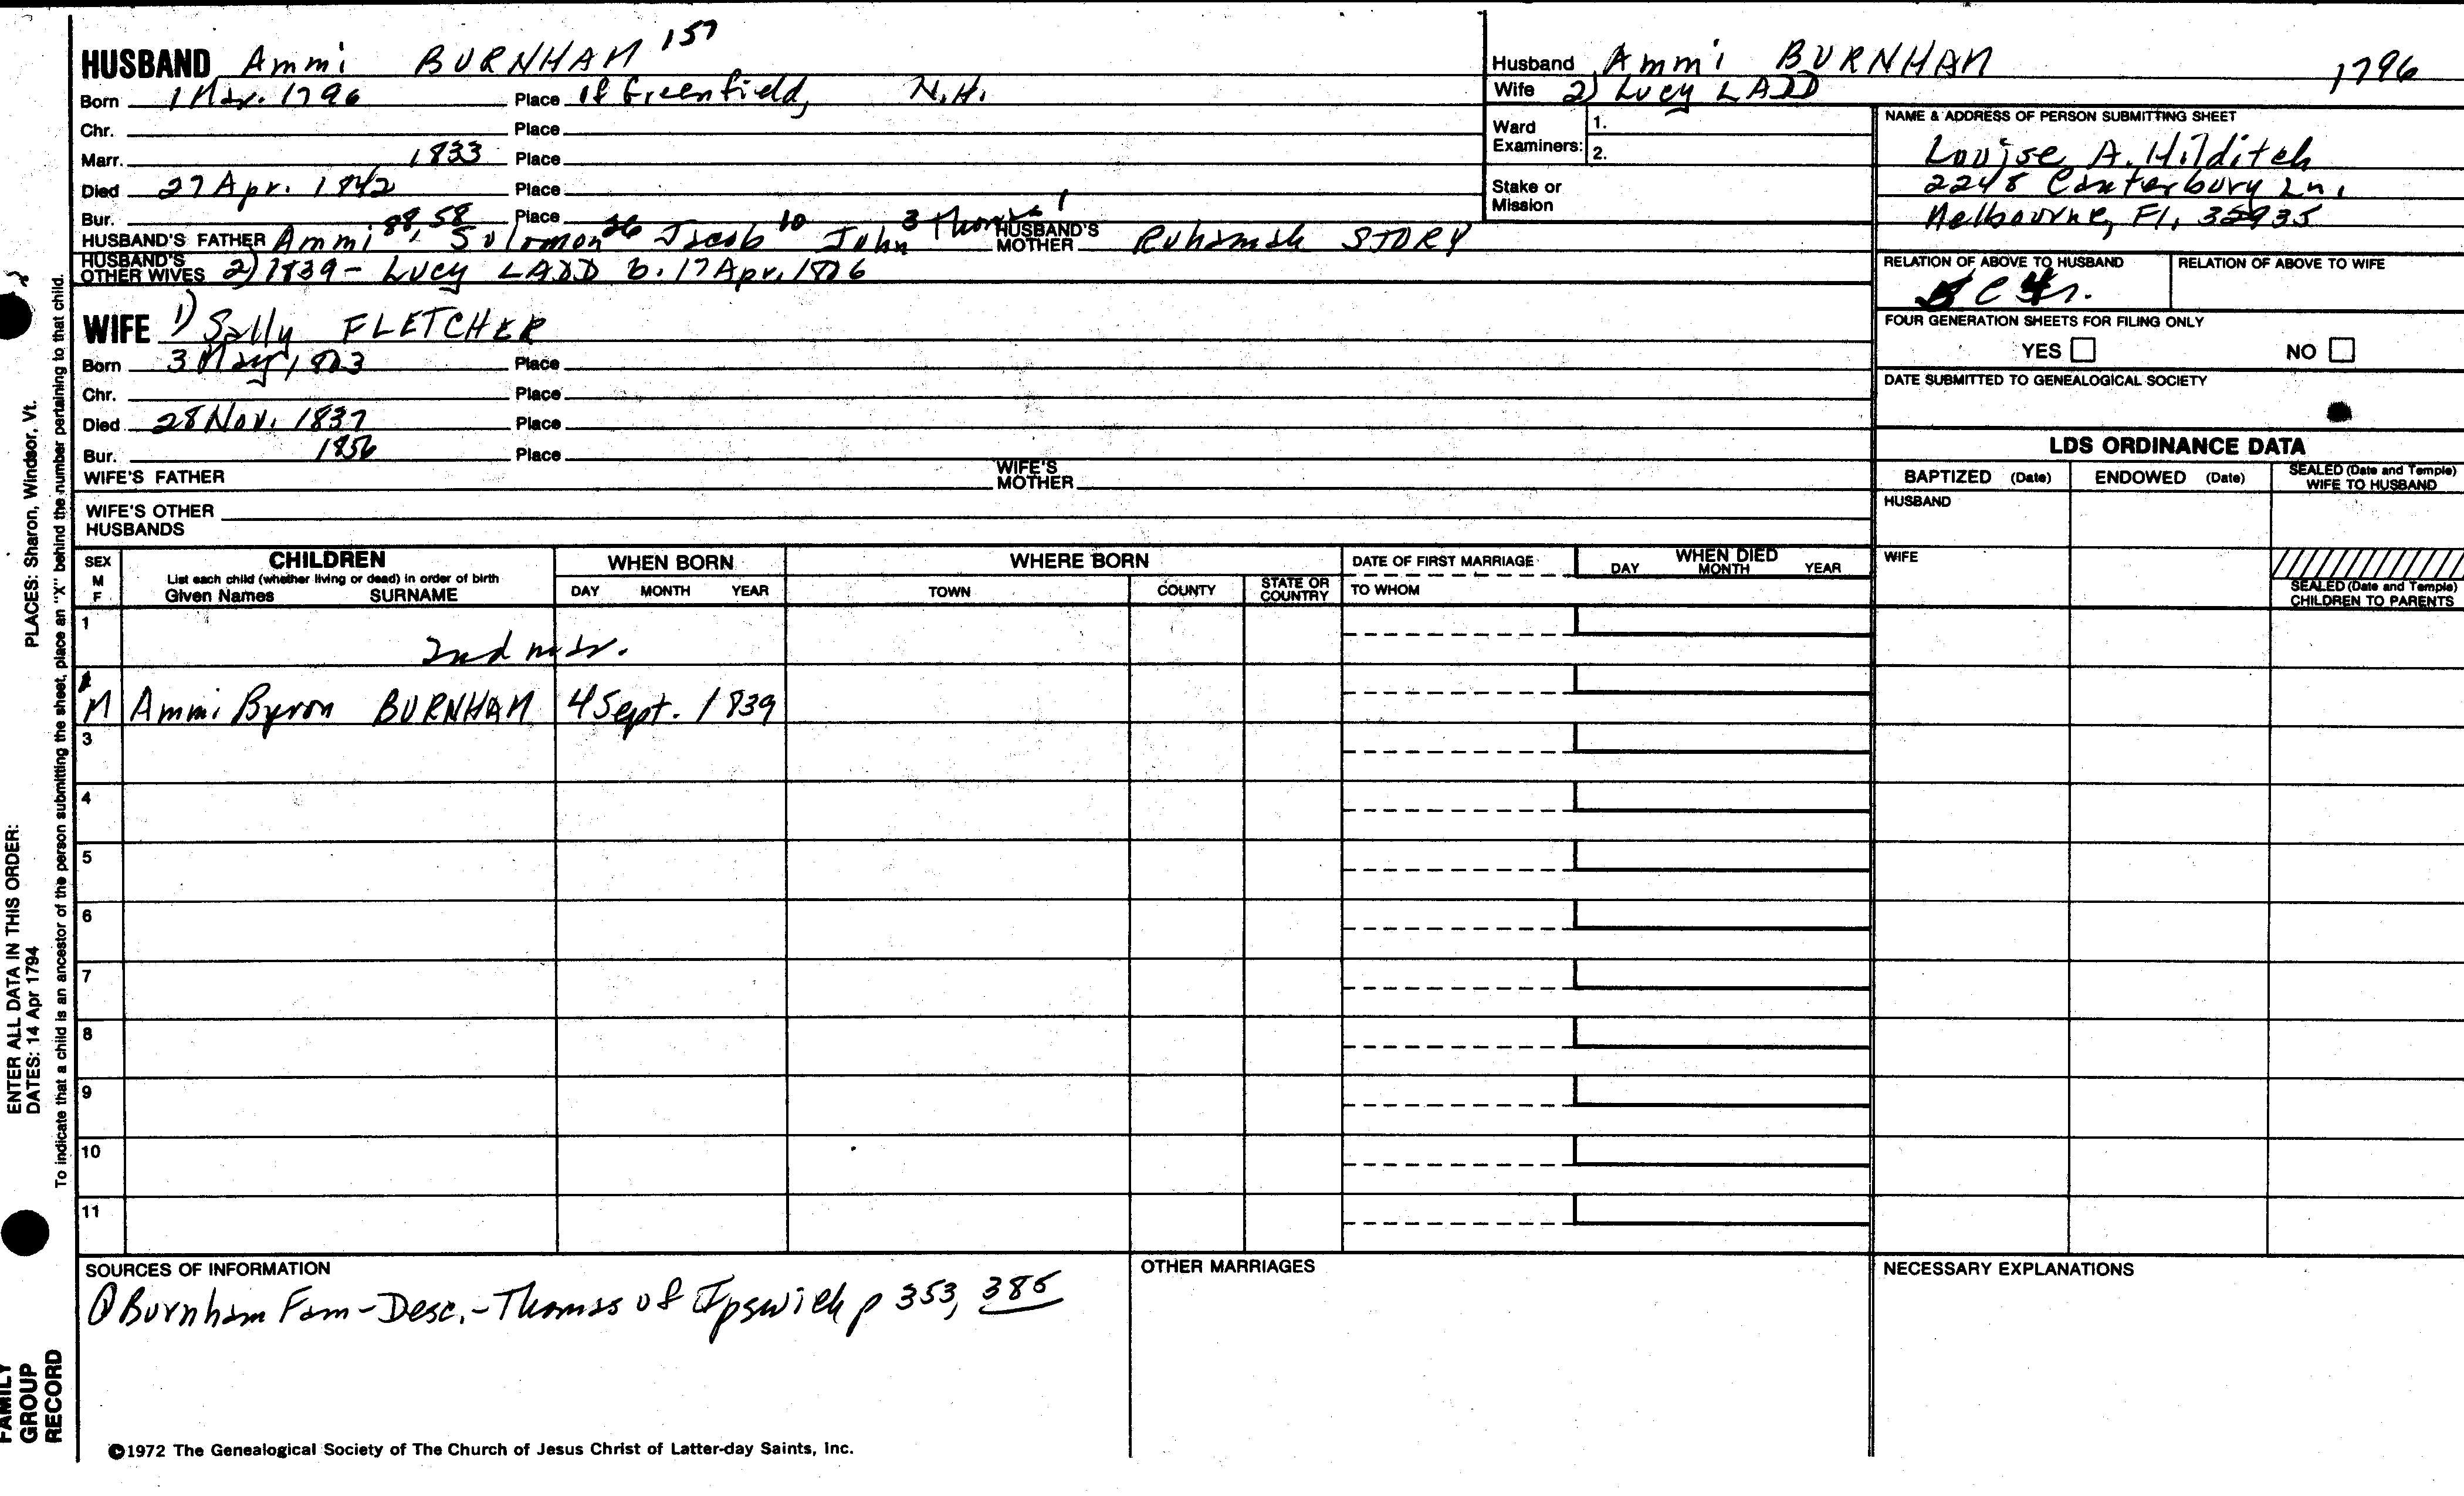 HUSBAND Ammi BURNHAM 157
Born 1 Mar. 1796 Place of Greenfield, N.H.
Chr. Place
Marr. 1833 Place
Died 27 Apr. 1842 Place
Bur. Place
HUSBAND'S FATHER Ammi 88, Solomon 58 Jacob 26 John 10 Thomas 3 1 HUSBAND'S MOTHER Ruhamah STORY
HUSBAND'S OTHER WIVES 2) 1839 - Lucy LADD b. 17 Apr. 1806
WIFE 1) Sally FLETCHER
Born 3 May, 1803 Place
Chr. Place
Died 28 Nov. 1837 Place
1856
Bur. Place
WIFE'S FATHER WIFE'S MOTHER
WIFE'S OTHER HUSBANDS
Husband Ammi BURNHAM 1796
Wife 2) Lucy LADD
Ward Examiners: 1.
2.
Stake or Mission
NAME & ADDRESS OF PERSON SUBMITTING SHEET
Louise A. Hilditch
2248 Canterbury Ln.
Melbourne, Fl. 32935
RELATION OF ABOVE TO HUSBAND RELATION OF ABOVE TO WIFE
FOUR GENERATION SHEETS FOR FILING ONLY
YES NO
DATE SUBMITTED TO GENEALOGICAL SOCIETY
LDS ORDINANCE DATA
BAPTIZED (Date) ENDOWED (Date) SEALED (Date and Temple) WIFE TO HUSBAND
HUSBAND
WIFE
SEALED (Date and Temple) CHILDREN TO PARENTS
SEX M F
CHILDREN
List each child (whether living or dead) in order of birth
Given Names SURNAME
WHEN BORN
DAY MONTH YEAR
WHERE BORN
TOWN COUNTY STATE OR COUNTRY
DATE OF FIRST MARRIAGE
TO WHOM
WHEN DIED
DAY MONTH YEAR
1
2nd mar.
M Ammi Byron BURNHAM 4 Sept. 1839
3
4
5
6
7
8
9
10
11
SOURCES OF INFORMATION
① Burnham Fam - Desc. - Thomas of Ipswich p 353, 385
OTHER MARRIAGES
NECESSARY EXPLANATIONS
©1972 The Genealogical Society of The Church of Jesus Christ of Latter-day Saints, Inc.
FAMILY GROUP RECORD
ENTER ALL DATA IN THIS ORDER:
DATES: 14 Apr 1794
PLACES: Sharon, Windsor, Vt.
To indicate that a child is an ancestor of the person submitting the sheet, place an "X" behind the number pertaining to that child.